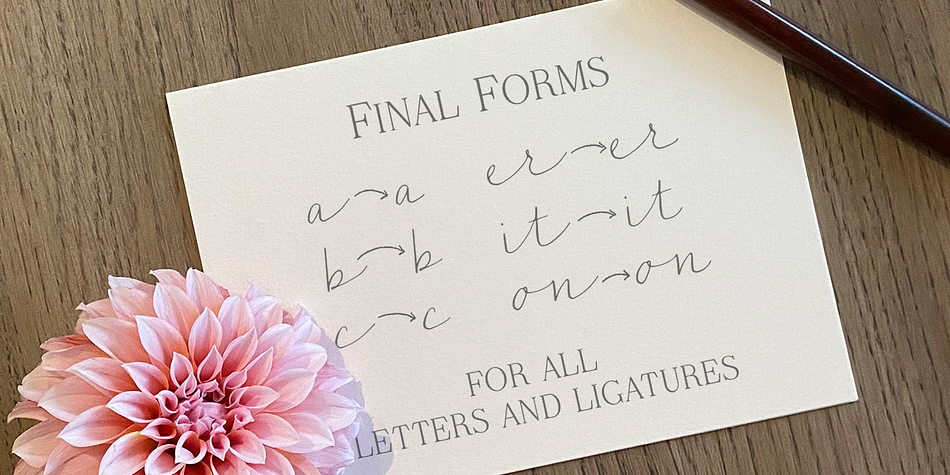 FINAL FORMS
a→a er→er
b→b it→it
c→c on→on
FOR ALL
LETTERS AND LIGATURES